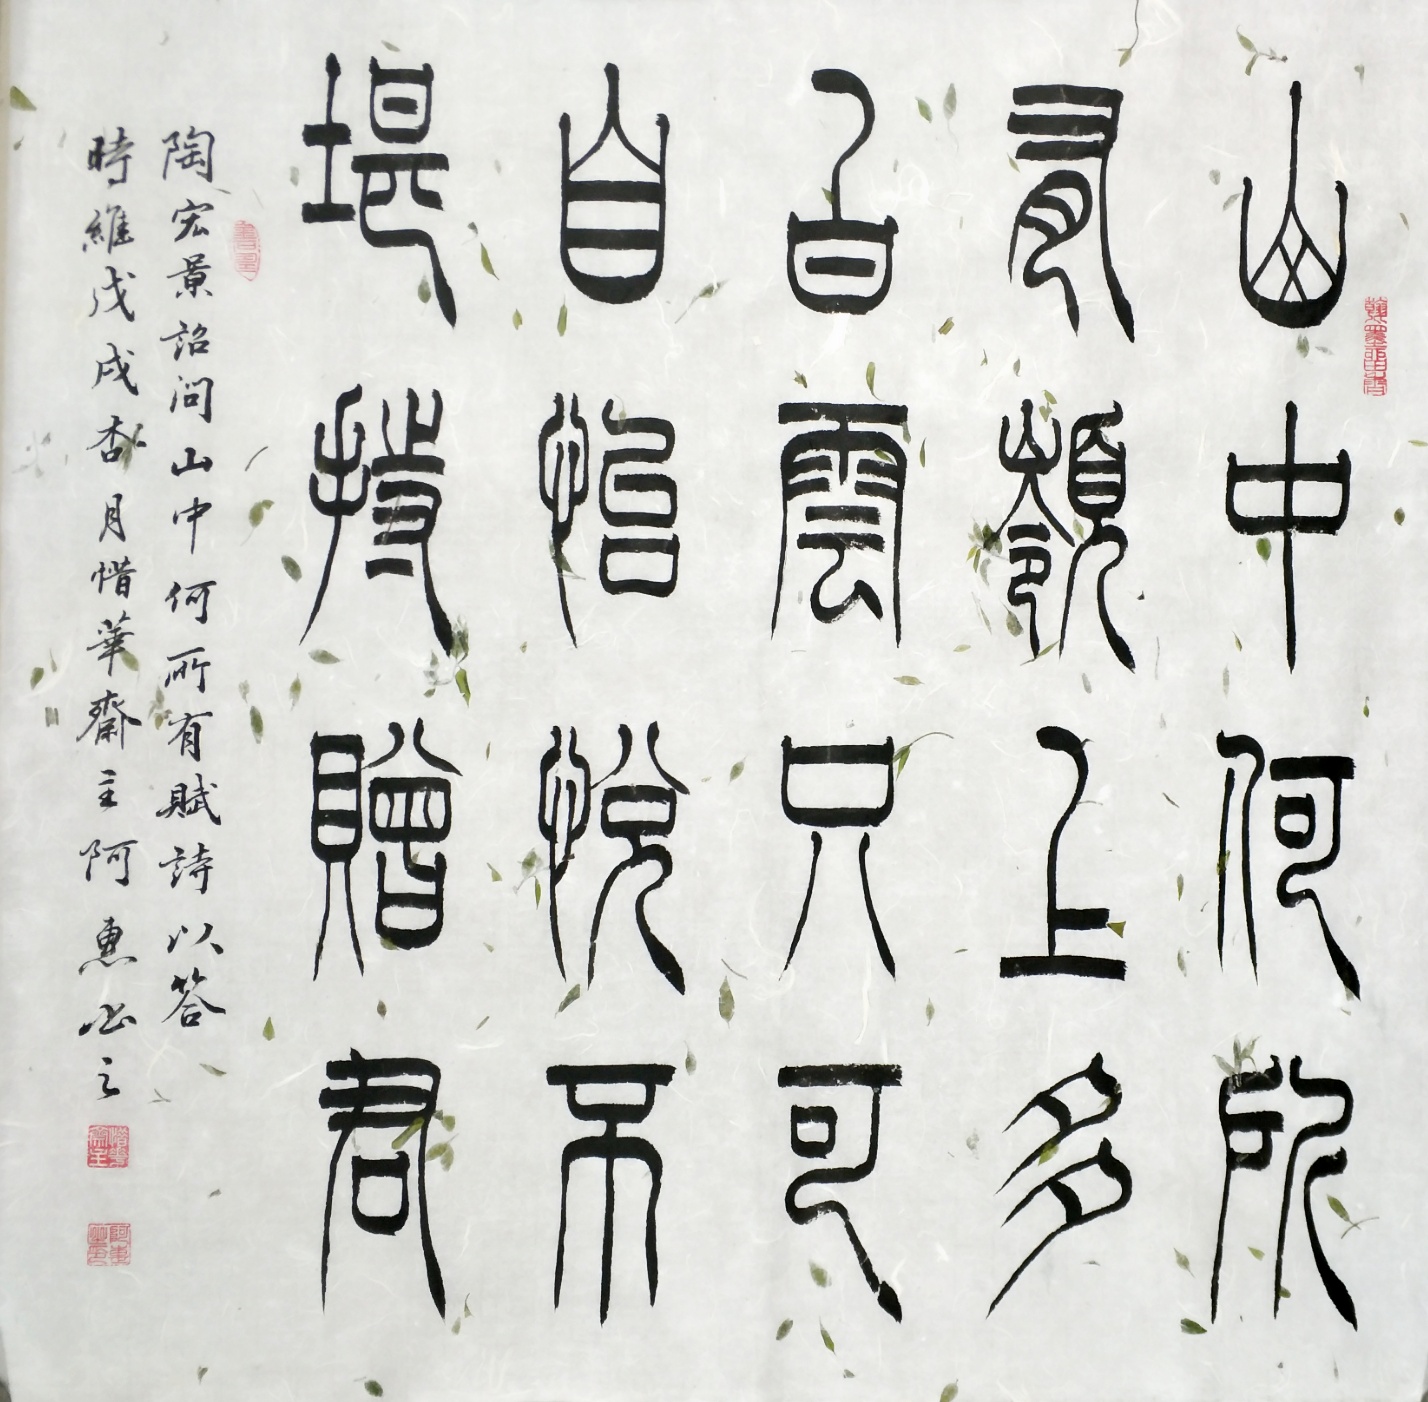 山中何所
有嶺上多
白雲只可
自怡悅不
堪持贈君
陶宏景詔問山中何所有賦詩以答
時維戊戌杏月惜華齋主阿惠书之
惜華齋主